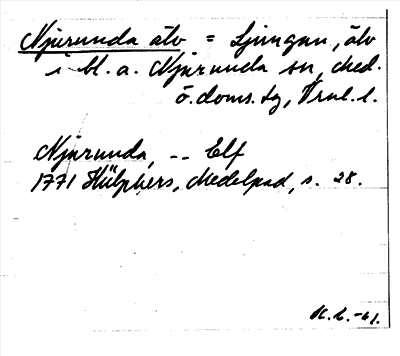 Njurunda älv = Ljungan, älv
i bl. a. Njurunda sn, Med.
ö. doms. tg, Vnl. l.
Njurunda, -- Elf
1771 Hülphers, Medelpad, s. 28.
K.L. -41.